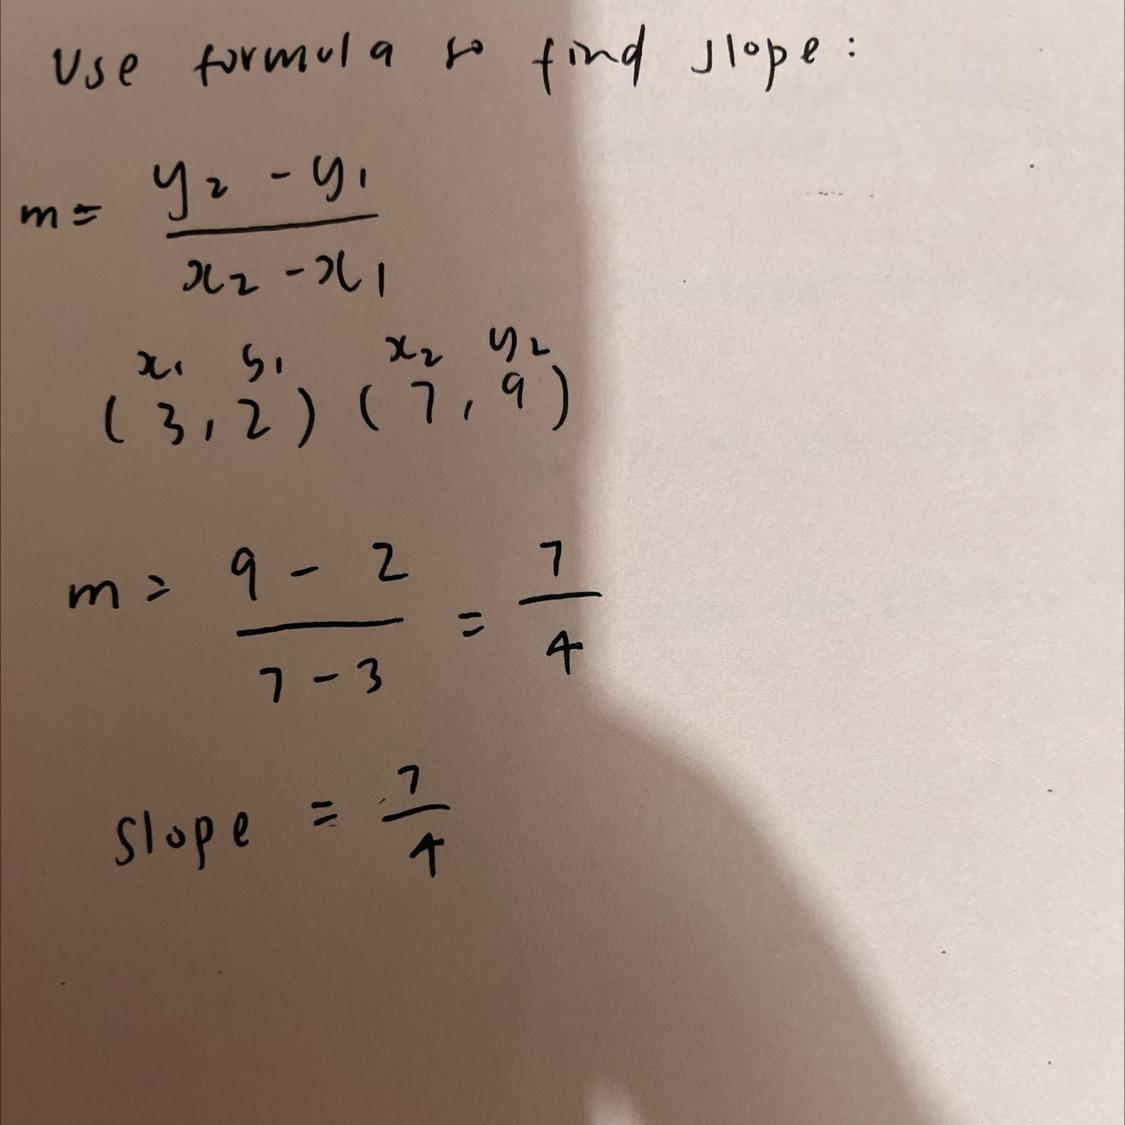 Use formula to find slope:
m = y₂ - y₁ / x₂ - x₁
x₁ y₁ x₂ y₂
(3, 2) (7, 9)
m = 9 - 2 / 7 - 3 = 7 / 4
slope = 7 / 4